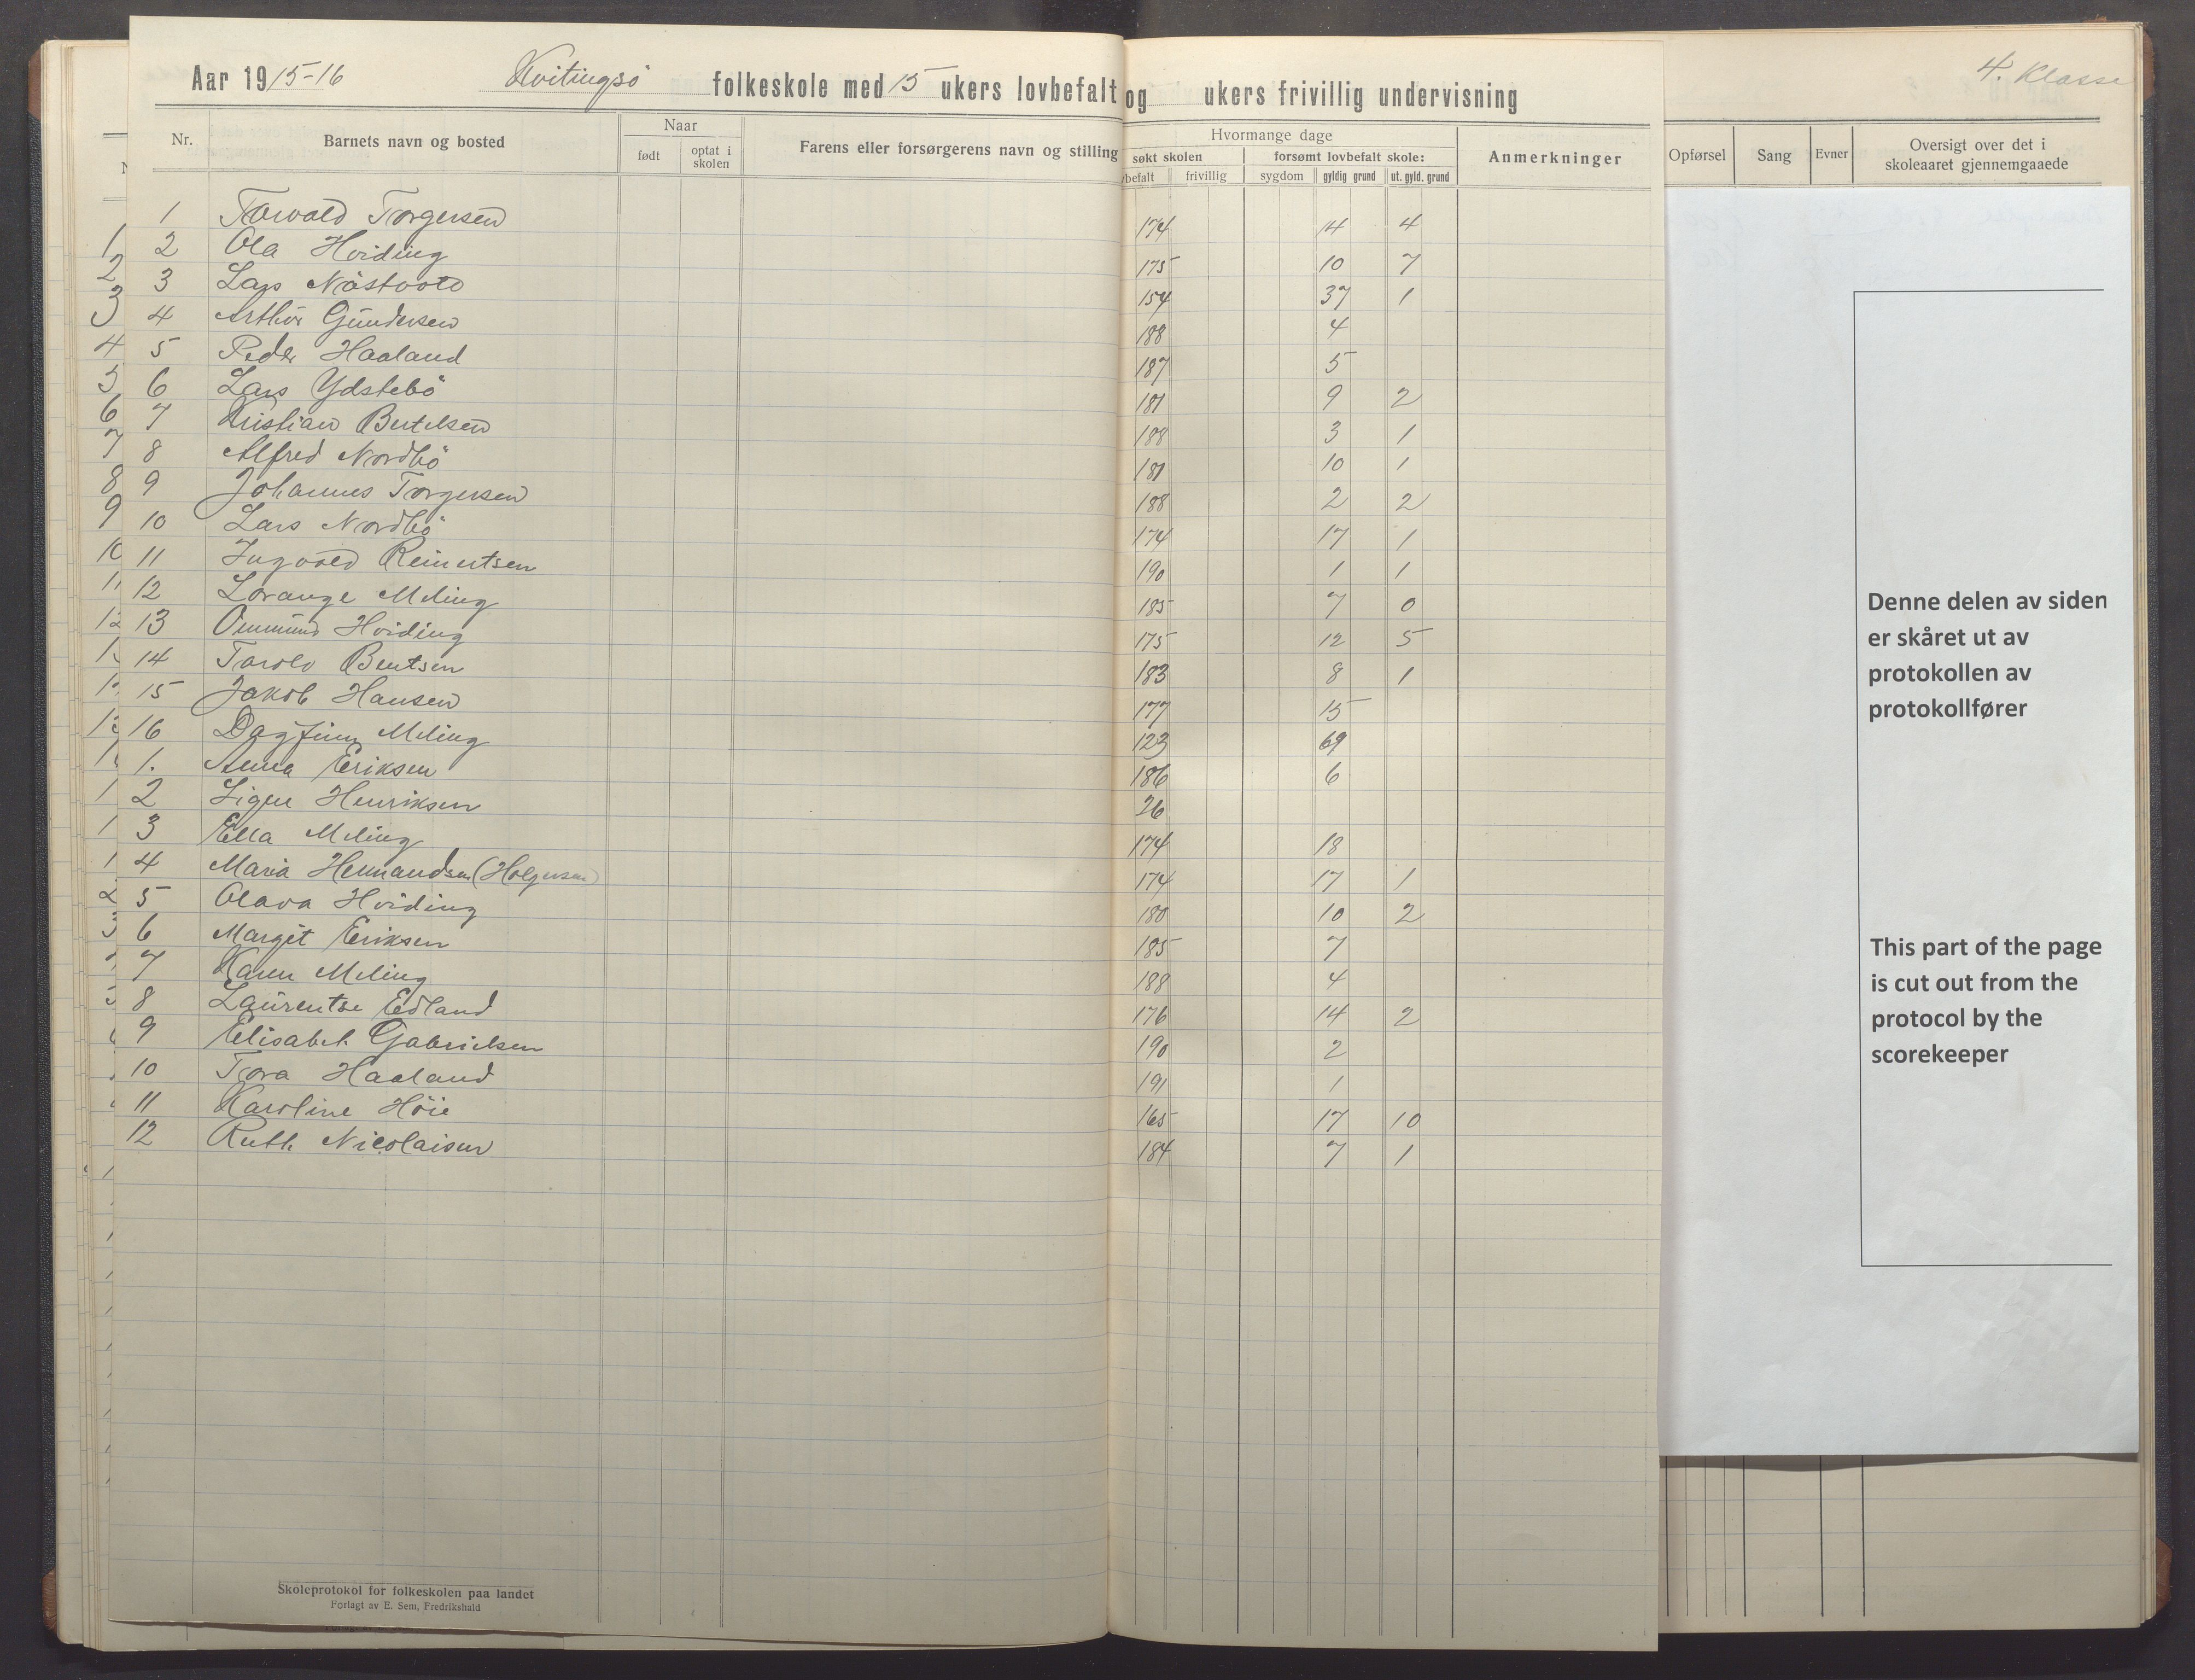 Aar 1915-16 Kvitingsö folkeskole med 15 ukers lovbefalt og ukers frivillig undervisning
4. Klasse
Nr. Barnets navn og bosted Naar født optat i skolen Farens eller forsørgerens navn og stilling Hvormange dage søkt skolen forsømt lovbefalt skole: Anmerkninger Opførsel Sang Evner Oversigt over det i skoleaaret gjennemgaaede
befalt frivillig sygdom gyldig grund ut. gyld. grund
1 Torvald Torgersen 174 14 4
2 Ola Hviding 175 10 7
3 Lars Nåstvold 154 37 1
4 Arthur Gundersen 188 4
5 Peder Haaland 187 5
6 Lars Ydstebö 181 9 2
7 Kristian Bertelsen 188 3 1
8 Alfred Nordbö 181 10 1
9 Johannes Torgersen 188 2 2
10 Lars Nordbö 174 17 1
11 Ingvald Reinertsen 190 1 1
12 Lorange Meling 185 7 0
13 Ommund Hviding 175 12 5
14 Torolv Bentsen 183 8 1
15 Jakob Hansen 177 15
16 Dagfinn Meling 123 69
1. Anna Eriksen 186 6
2 Henriksen 26
3 Ella Meling 174 18
4 Maria Hermandsen (Holgersen) 174 17 1
5 Olava Hviding 180 10 2
6 Margit Eriksen 185 7
7 Karen Meling 188 4
8 Laurentse Edland 176 14 2
9 Elisabeth Gabrielsen 190 2
10 Tora Haaland 191 1
11 Karoline Höie 165 17 10
12 Ruth Nicolaisen 184 7 1
Skoleprotokol for folkeskolen paa landet
Forlagt av E. Sem, Fredrikshald
Denne delen av siden
er skåret ut av
protokollen av
protokollfører
This part of the page
is cut out from the
protocol by the
scorekeeper